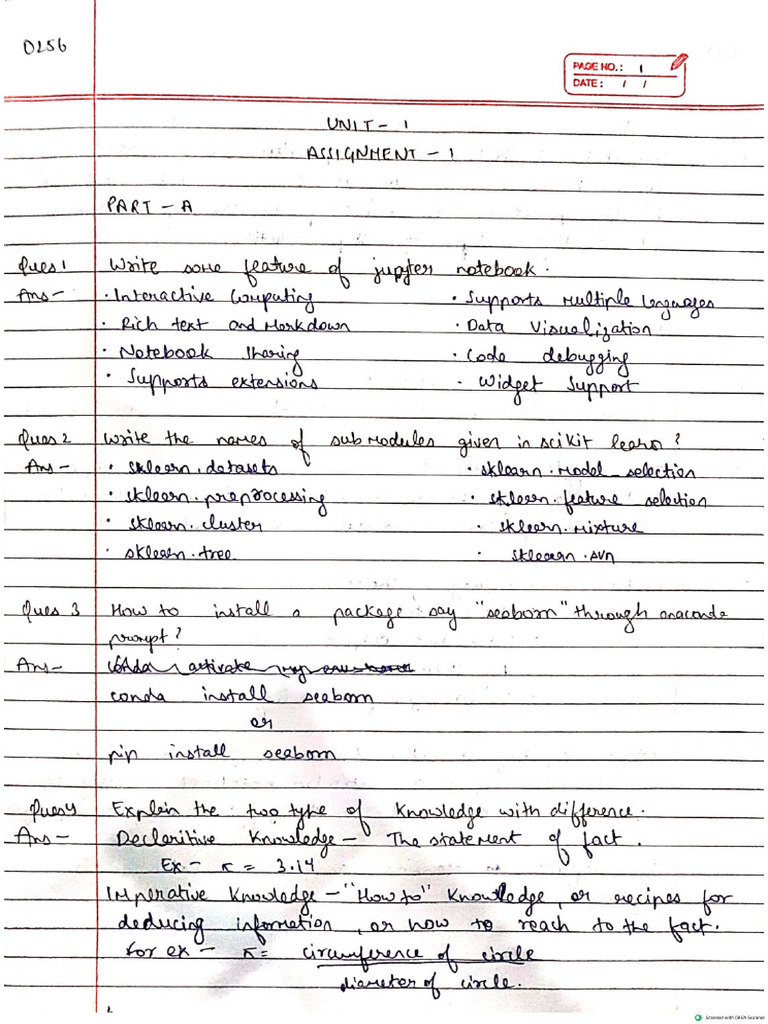 0256
PAGE NO.: 1
DATE: / /
UNIT - 1
ASSIGNMENT - 1
PART - A
Ques 1 Write some feature of jupyter notebook.
Ans - · Interactive Computing · Supports Multiple lenguages
· Rich text and Markdown · Data Visualization
· Notebook Sharing · Code debugging
· Supports extensions · Widget Support
Ques 2 Write the names of submodules given in scikit learn?
Ans - · sklearn.datasets · sklearn.model_selection
· sklearn.preprocessing · sklearn.feature selection
· sklearn.cluster · sklearn.mixture
sklearn.tree · sklearn.svn
Ques 3 How to install a package say "seaborn" through anaconda
prompt?
Ans - conda activate
conda install seaborn
or
pip install seaborn
Ques 4 Explain the two type of Knowledge with difference.
Ans - Decleritive Knowledge - The statement of fact.
Ex - π = 3.14
Imperative Knowledge - "How to" Knowledge, or recipes for
deducing information, or how to reach to the fact.
for ex - π = circumference of circle
diameter of circle.
Scanned with OKEN Scanner